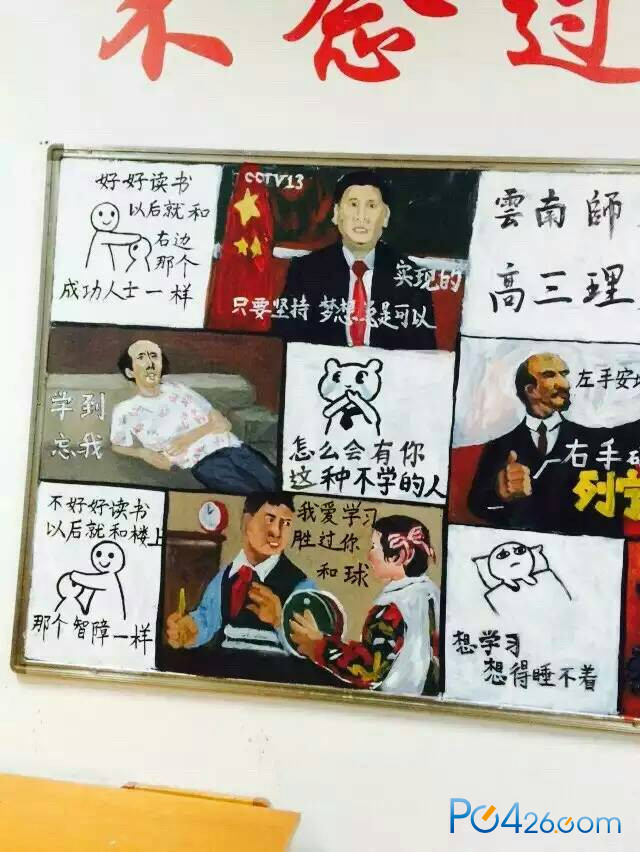 不念过
好好读书
以后就和
右边
那个
成功人士一样
CCTV13
实现的
只要坚持 梦想总是可以
雲南師
高三理
学到
忘我
怎么会有你
这种不学的人
左手安
右手
列宁
不好好读书
以后就和楼上
那个智障一样
我爱学习
胜过你
和球
想学习
想得睡不着
PC426.com